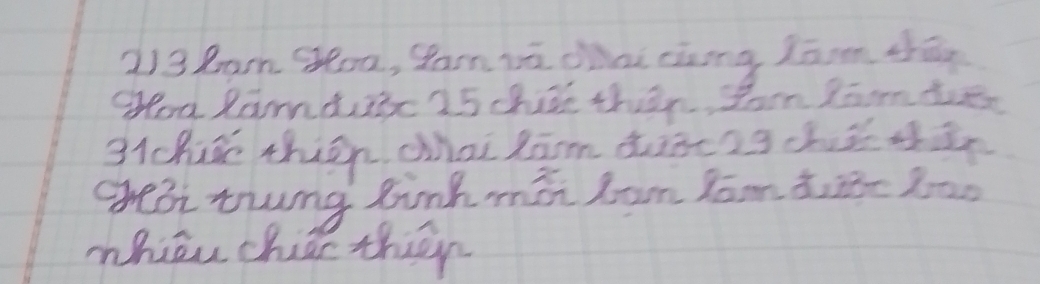 2) 3 bạn Hoa, Lam và Mai cùng làm thiệp
Hoa làm được 25 chiếc thiệp. Lam làm được
31 chiếc thiệp. Mai làm được 29 chiếc thiệp
Hỏi trung bình mỗi bạn làm được bao
nhiêu chiếc thiệp